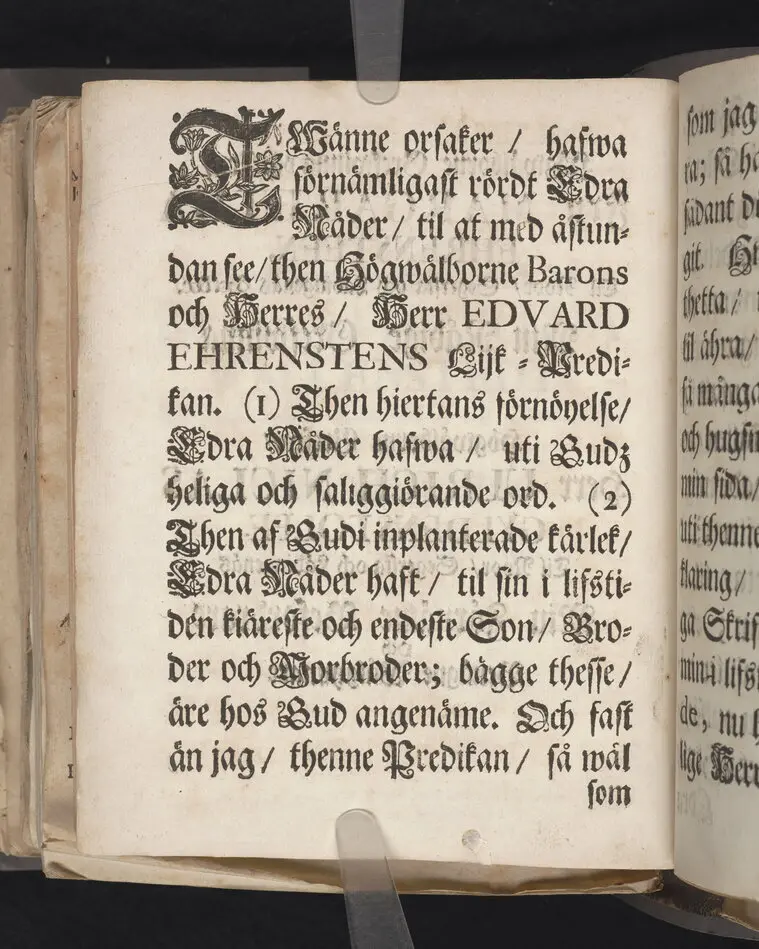 TWänne orsaker / hafwa
förnämligast rördt Edra
Nåder / til at med åstun-
dan see / then Högwälborne Barons
och Herres / Herr EDVARD
EHRENSTENS Lijk-Predi-
kan. (1) Then hiertans förnöyelse /
Edra Nåder hafwa / uti Gudz
heliga och saliggiörande ord. (2)
Then af Gudi inplanterade kärlek /
Edra Nåder haft / til sin i lifsti-
den kiäreste och endeste Son / Bro-
der och Morbroder; bägge thesse /
äre hos Gud angenäme. Och fast
än jag / thenne Predikan / så wäl
som
som jag
ra; så
sådant
git.
thetta /
til ähra /
så många
och hugsw
min sida /
uti thenne
klaring /
ga Skrif
min i lifs
de, nu
lige Her